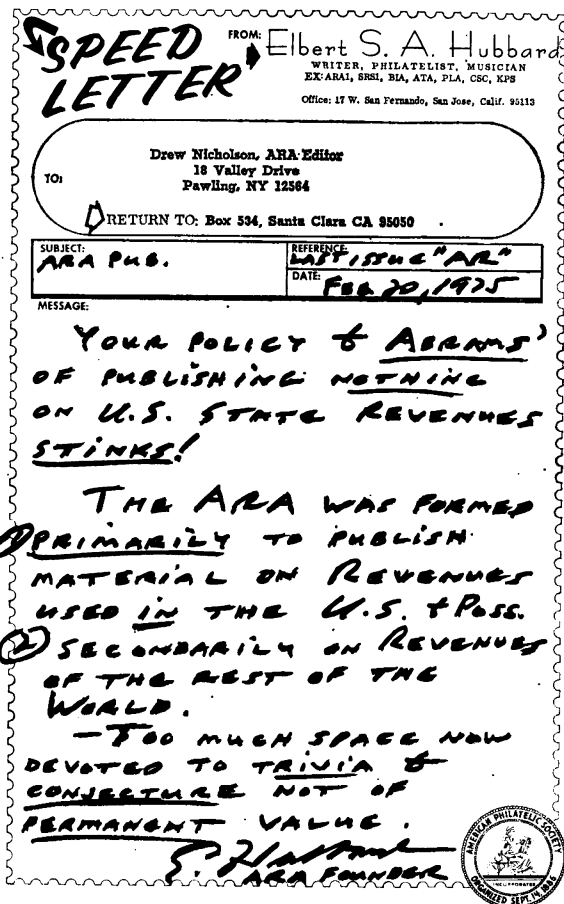 SPEED
LETTER
FROM:
Elbert S. A. Hubbard
WRITER, PHILATELIST, MUSICIAN
EX:ARA1, SRS1, BIA, ATA, PLA, CSC, KPS
Office: 17 W. San Fernando, San Jose, Calif. 95113
TO:
Drew Nicholson, ARA Editor
18 Valley Drive
Pawling, NY 12564
RETURN TO: Box 534, Santa Clara CA 95050
SUBJECT:
ARA PUB.
REFERENCE:
LAST ISSUE "AR"
DATE:
FEB 20, 1975
MESSAGE:
YOUR POLICY & ABRAMS'
OF PUBLISHING NOTHING
ON U.S. STATE REVENUES
STINKS!
THE ARA WAS FORMED
1) PRIMARILY TO PUBLISH
MATERIAL ON REVENUES
USED IN THE U.S. + POSS.
2 SECONDARILY ON REVENUES
OF THE REST OF THE
WORLD.
- TOO MUCH SPACE NOW
DEVOTED TO TRIVIA &
CONJECTURE NOT OF
PERMANENT VALUE.
E. Hubbard
ARA FOUNDER
AMERICAN PHILATELIC SOCIETY
INCORPORATED
ORGANIZED SEPT. 14, 1886